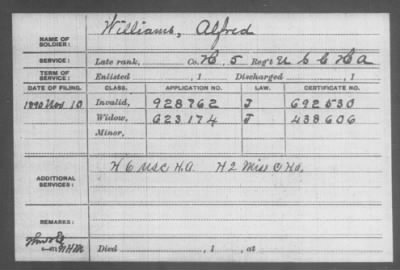 NAME OF SOLDIER: Williams, Alfred
SERVICE: Late rank, Co. H, 5 Reg't U S C H A
TERM OF SERVICE: Enlisted , 1 Discharged , 1
DATE OF FILING. CLASS. APPLICATION NO. LAW. CERTIFICATE NO.
1890 Nov. 10 Invalid, 928762 J 692530
Widow, 623174 J 438606
Minor,
ADDITIONAL SERVICES: H 6 USC H.A. H 2 Miss C Ha.
REMARKS:
Died , 1 , at